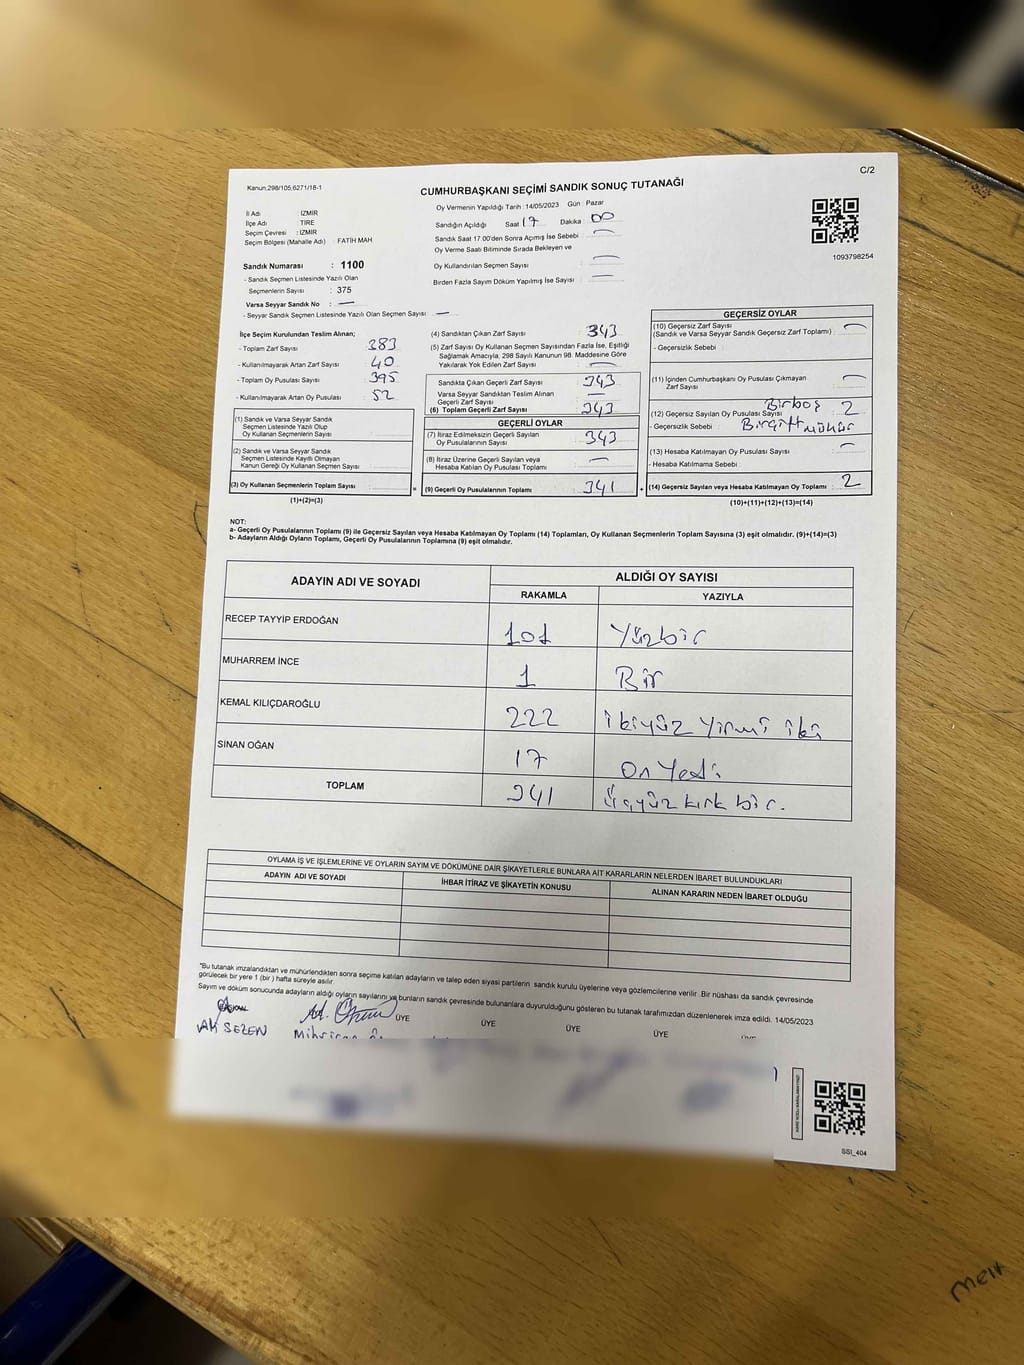 C/2
Kanun:298/105,6271/18-1
CUMHURBAŞKANI SEÇİMİ SANDIK SONUÇ TUTANAĞI
Oy Vermenin Yapıldığı Tarih : 14/05/2023 Gün : Pazar
İl Adı : İZMİR
İlçe Adı : TİRE
Seçim Çevresi : İZMİR
Seçim Bölgesi (Mahalle Adı) : FATİH MAH
Sandığın Açıldığı Saat 17 Dakika : 00
Sandık Saat 17:00'den Sonra Açımış İse Sebebi :
Oy Verme Saati Bitiminde Sırada Bekleyen ve
Oy Kullandırılan Seçmen Sayısı :
Birden Fazla Sayım Döküm Yapılmış İse Sayısı : —
1093798254
Sandık Numarası : 1100
- Sandık Seçmen Listesinde Yazılı Olan
Seçmenlerin Sayısı : 375
Varsa Seyyar Sandık No : —
- Seyyar Sandık Seçmen Listesinde Yazılı Olan Seçmen Sayısı : —
İlçe Seçim Kurulundan Teslim Alınan;
- Toplam Zarf Sayısı : 383
- Kullanılmayarak Artan Zarf Sayısı : 40
- Toplam Oy Pusulası Sayısı : 395
- Kullanılmayarak Artan Oy Pusulası : 52
(1) Sandık ve Varsa Seyyar Sandık
Seçmen Listesinde Yazılı Olup
Oy Kullanan Seçmenlerin Sayısı :
(2) Sandık ve Varsa Seyyar Sandık
Seçmen Listesinde Kayıtlı Olmayan
Kanun Gereği Oy Kullanan Seçmen Sayısı :
(3) Oy Kullanan Seçmenlerin Toplam Sayısı :
(1)+(2)=(3)
(4) Sandıktan Çıkan Zarf Sayısı : 343
(5) Zarf Sayısı Oy Kullanan Seçmen Sayısından Fazla İse, Eşitliği
Sağlamak Amacıyla, 298 Sayılı Kanunun 98. Maddesine Göre
Yakılarak Yok Edilen Zarf Sayısı :
Sandıkta Çıkan Geçerli Zarf Sayısı : 343
Varsa Seyyar Sandıktan Teslim Alınan
Geçerli Zarf Sayısı : —
(6) Toplam Geçerli Zarf Sayısı : 343
GEÇERLİ OYLAR
(7) İtiraz Edilmeksizin Geçerli Sayılan
Oy Pusulalarının Sayısı : 343
(8) İtiraz Üzerine Geçerli Sayılan veya
Hesaba Katılan Oy Pusulası Toplamı :
= (9) Geçerli Oy Pusulalarının Toplamı : 341 +
GEÇERSİZ OYLAR
(10) Geçersiz Zarf Sayısı
(Sandık ve Varsa Seyyar Sandık Geçersiz Zarf Toplamı) :
- Geçersizlik Sebebi :
(11) İçinden Cumhurbaşkanı Oy Pusulası Çıkmayan
Zarf Sayısı :
(12) Geçersiz Sayılan Oy Pusulası Sayısı : Birboş 2
- Geçersizlik Sebebi : Birçift mühür
(13) Hesaba Katılmayan Oy Pusulası Sayısı :
- Hesaba Katılmama Sebebi :
(14) Geçersiz Sayılan veya Hesaba Katılmayan Oy Toplamı : 2
(10)+(11)+(12)+(13)=(14)
NOT:
a- Geçerli Oy Pusulalarının Toplamı (9) ile Geçersiz Sayılan veya Hesaba Katılmayan Oy Toplamı (14) Toplamları, Oy Kullanan Seçmenlerin Toplam Sayısına (3) eşit olmalıdır. (9)+(14)=(3)
b- Adayların Aldığı Oyların Toplamı, Geçerli Oy Pusulalarının Toplamına (9) eşit olmalıdır.
ADAYIN ADI VE SOYADI ALDIĞI OY SAYISI
RAKAMLA YAZIYLA
RECEP TAYYİP ERDOĞAN 101 Yüzbir
MUHARREM İNCE 1 Bir
KEMAL KILIÇDAROĞLU 222 ikiyüz yirmi iki
SİNAN OĞAN 17 On Yedi
TOPLAM 341 Üçyüz kırk bir.
OYLAMA İŞ VE İŞLEMLERİNE VE OYLARIN SAYIM VE DÖKÜMÜNE DAİR ŞİKAYETLERLE BUNLARA AİT KARARLARIN NELERDEN İBARET BULUNDUKLARI
ADAYIN ADI VE SOYADI İHBAR İTİRAZ VE ŞİKAYETİN KONUSU ALINAN KARARIN NEDEN İBARET OLDUĞU
"Bu tutanak imzalandıktan ve mühürlendikten sonra seçime katılan adayların ve talep eden siyasi partilerin sandık kurulu üyelerine veya gözlemcilerine verilir. Bir nüshası da sandık çevresinde
görülecek bir yere 1 (bir ) hafta süreyle asılır.
Sayım ve döküm sonucunda adayların aldığı oyların sayılarını ve bunların sandık çevresinde bulunanlara duyurulduğunu gösteren bu tutanak tarafımızdan düzenlenerek imza edildi. 14/05/2023
ÜYE ÜYE ÜYE ÜYE
Ali SEZEN
SSI_404
melt